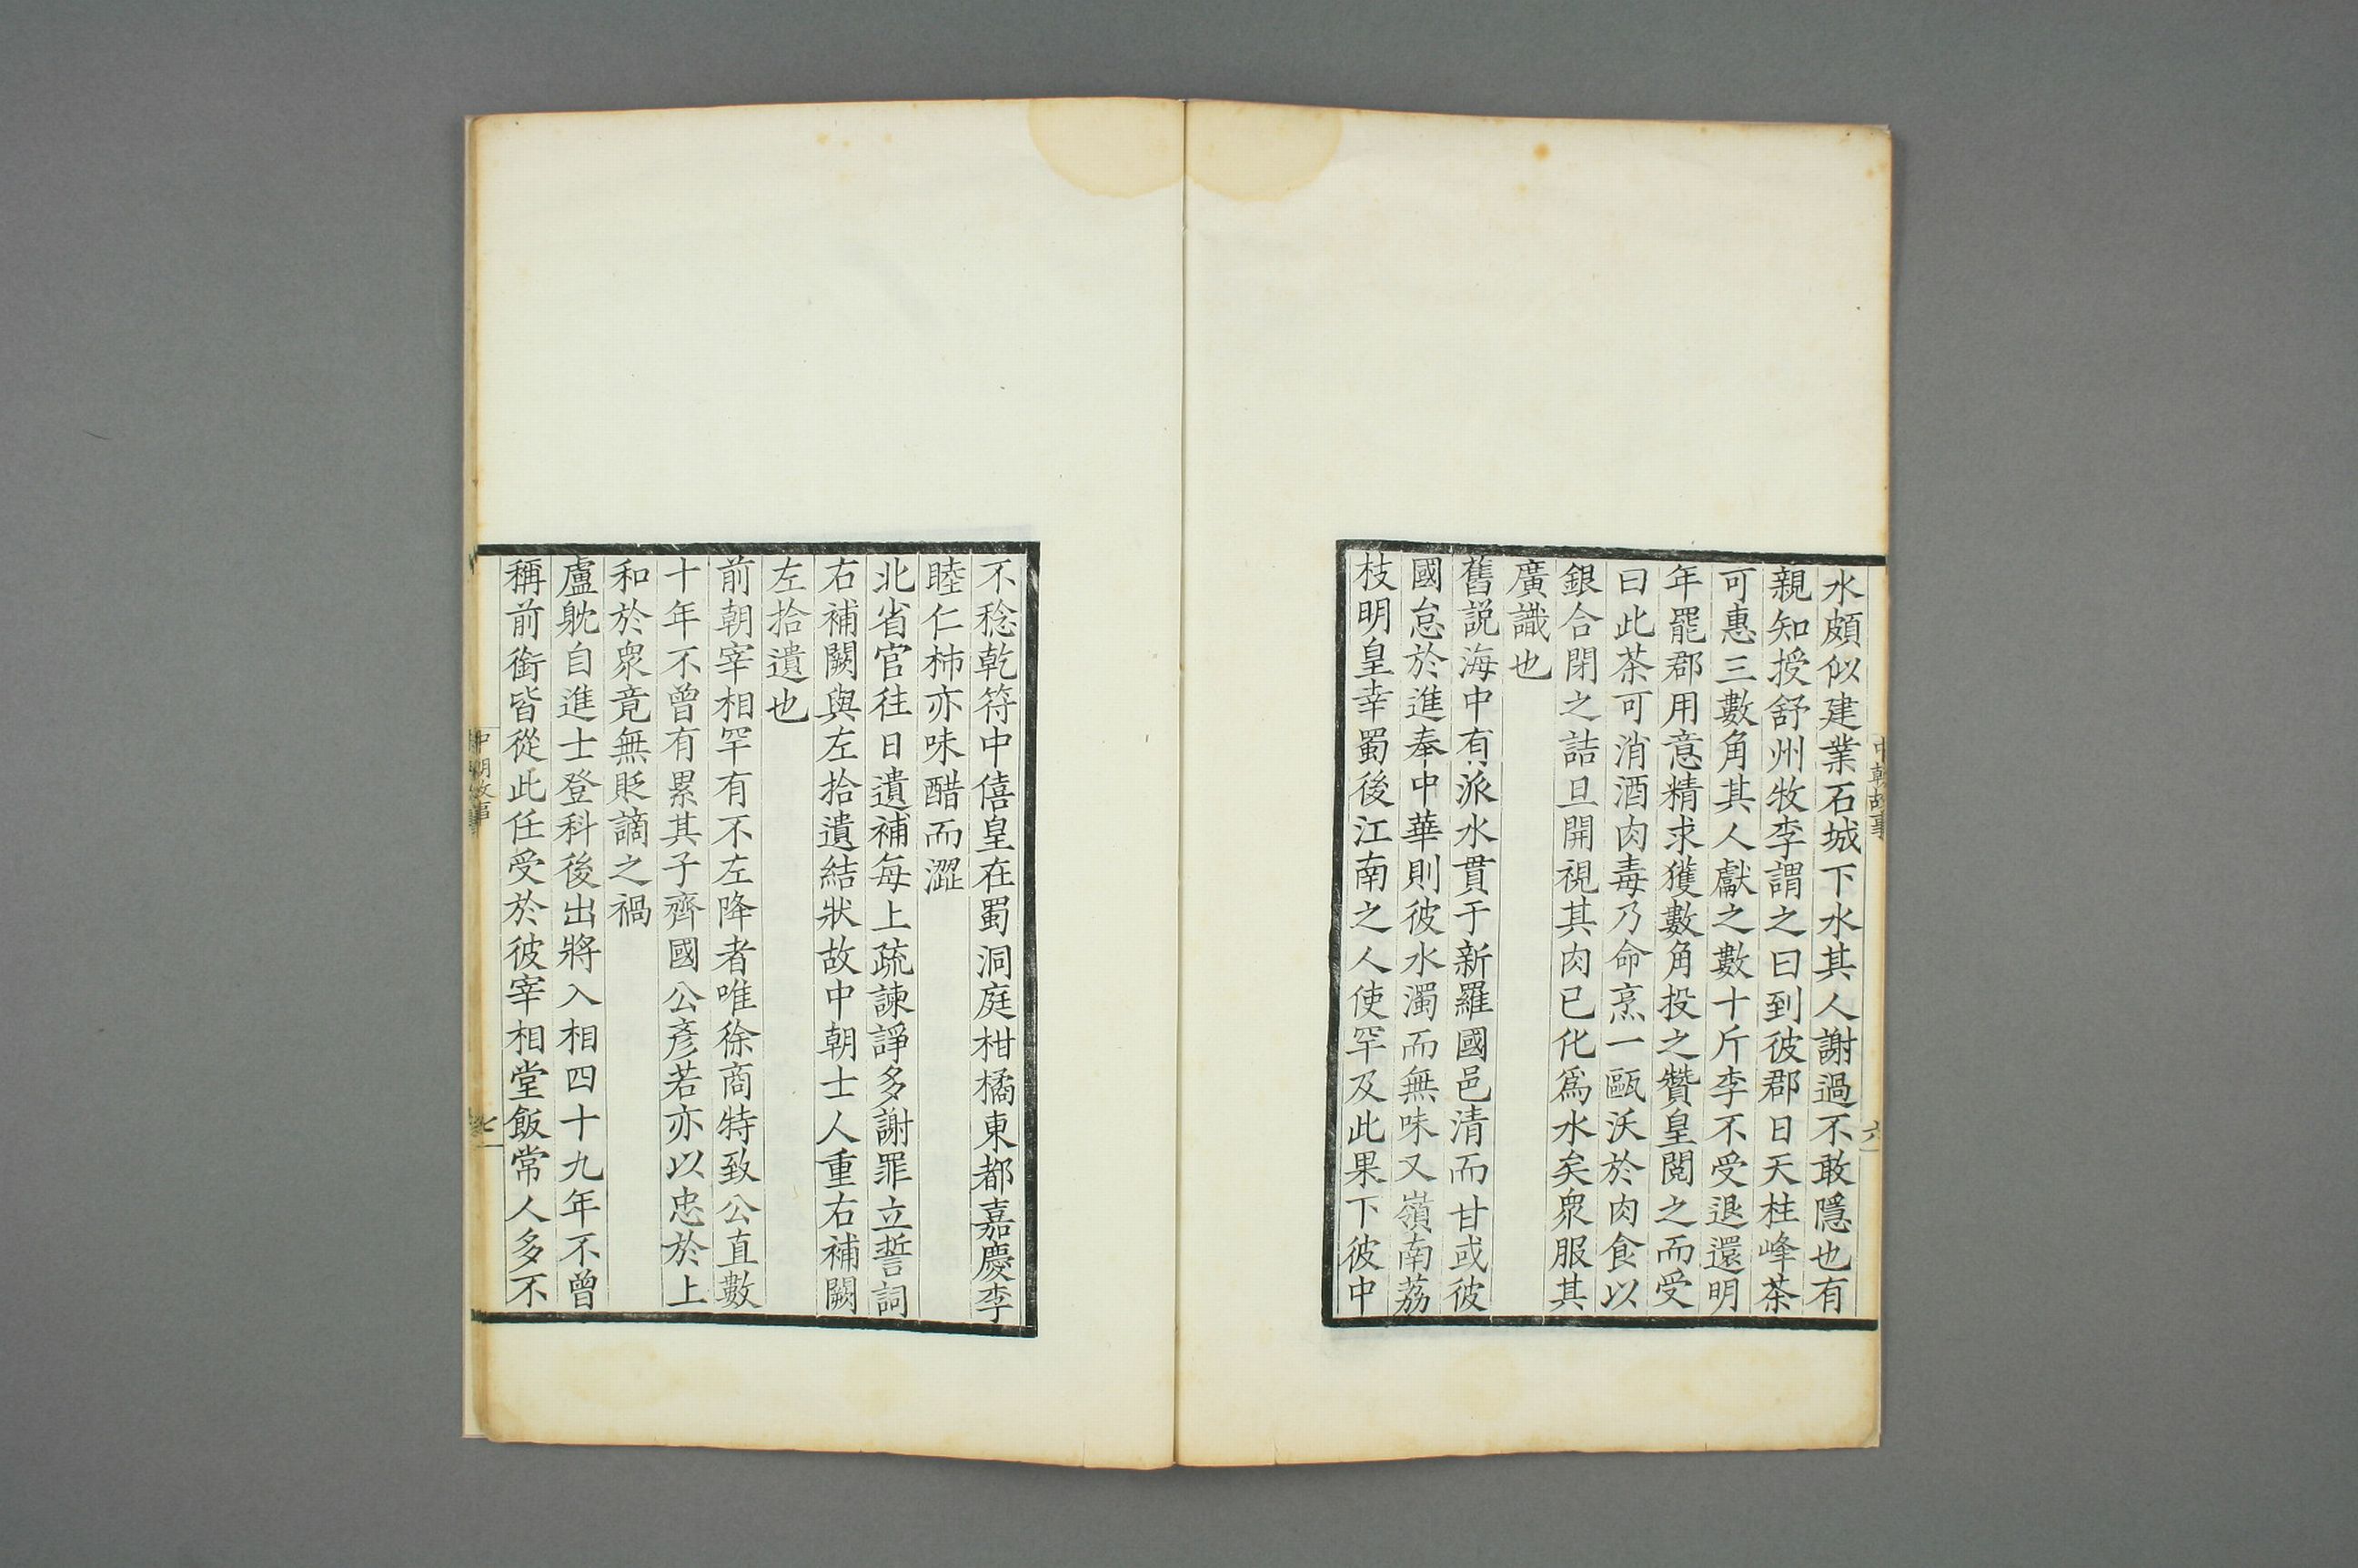 水頗似建業石城下水其人謝過不敢隱也有
親知授舒州牧李謂之曰到彼郡日天柱峰茶
可惠三數角其人獻之數十斤李不受退還明
年罷郡用意精求獲數角投之贊皇閲之而受
曰此茶可消酒肉毒乃命烹一甌沃於肉食以
銀合閉之詰旦開視其肉已化爲水矣衆服其
廣識也
舊説海中有派水貫于新羅國邑清而甘或彼
國怠於進奉中華則彼水濁而無味又嶺南荔
枝明皇幸蜀後江南之人使罕及此果下彼中
中朝故事
六
不稔乾符中僖皇在蜀洞庭柑橘東都嘉慶李
睦仁柿亦味醋而澀
北省官往日遺補每上疏諫諍多謝罪立誓詞
右補闕與左拾遺結狀故中朝士人重右補闕
左拾遺也
前朝宰相罕有不左降者唯徐商特致公直數
十年不曾有累其子齊國公彦若亦以忠於上
和於衆竟無貶謫之禍
盧躭自進士登科後出將入相四十九年不曾
稱前銜皆從此任受於彼宰相堂飯常人多不
中朝故事
七